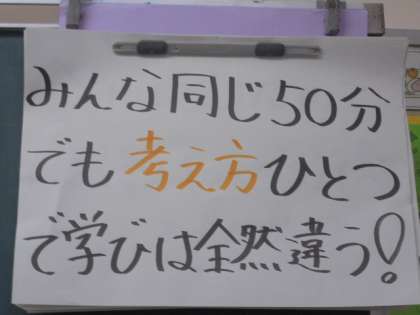 みんな同じ50分
でも考え方ひとつ
で学びは全然違う!